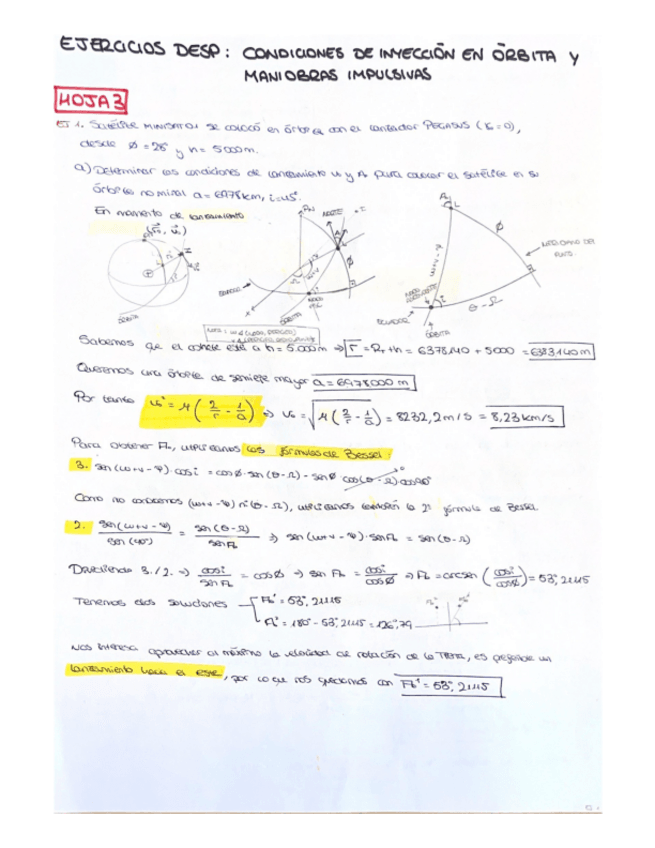 EJERCICIOS DESP: CONDICIONES DE INYECCIÓN EN ÓRBITA Y
MANIOBRAS IMPULSIVAS
HOJA 3
EJ 1. Satélite MINISAT01 se colocó en órbita con el lanzador PEGASUS (γ₀=0),
desde ø = 28° y h = 5000m.
a) Determinar las condiciones de lanzamiento v₀ y A₀ para colocar el satélite en su
órbita nominal a = 6978km, i=45°.
En momento de lanzamiento
NORTE
ECUADOR
ÓRBITA
ECUADOR
ÓRBITA
θ - Ω
Sabemos que el cohete está a h = 5.000m ⇒ r = R_T + h = 6378140 + 5000 = 6383140m
Queremos una órbita de semieje mayor a = 6978000 m
Por tanto v₀² = μ (2/r - 1/a) ⇒ v₀ = √(μ (2/r - 1/a)) = 8232,2m/s = 8,23km/s
Para obtener A₀, utilizamos las fórmulas de Bessel:
3. sen(ω+ν-φ)·cos i = cosø·sen(θ-Ω) - senø cos(θ-Ω)cos90°
Como no conocemos (ω+ν-φ) ni (θ-Ω), utilizamos también la 2ª fórmula de Bessel
2. sen(ω+ν-φ)/sen(90°) = sen(θ-Ω)/sen A₀ ⇒ sen(ω+ν-φ)·sen A₀ = sen(θ-Ω)
Dividiendo 3./2. ⇒ cos i/sen A₀ = cosø ⇒ sen A₀ = cos i/cosø ⇒ A₀ = arcsen (cos i/cosø) = 53°,2145
Tenemos dos soluciones A₀' = 53°,2145
A₀'' = 180° - 53°,2145 = 126°,79
Nos interesa aprovechar al máximo la velocidad de rotación de la Tierra, es preferible un
lanzamiento hacia el este, por lo que nos quedamos con A₀' = 53°,2145